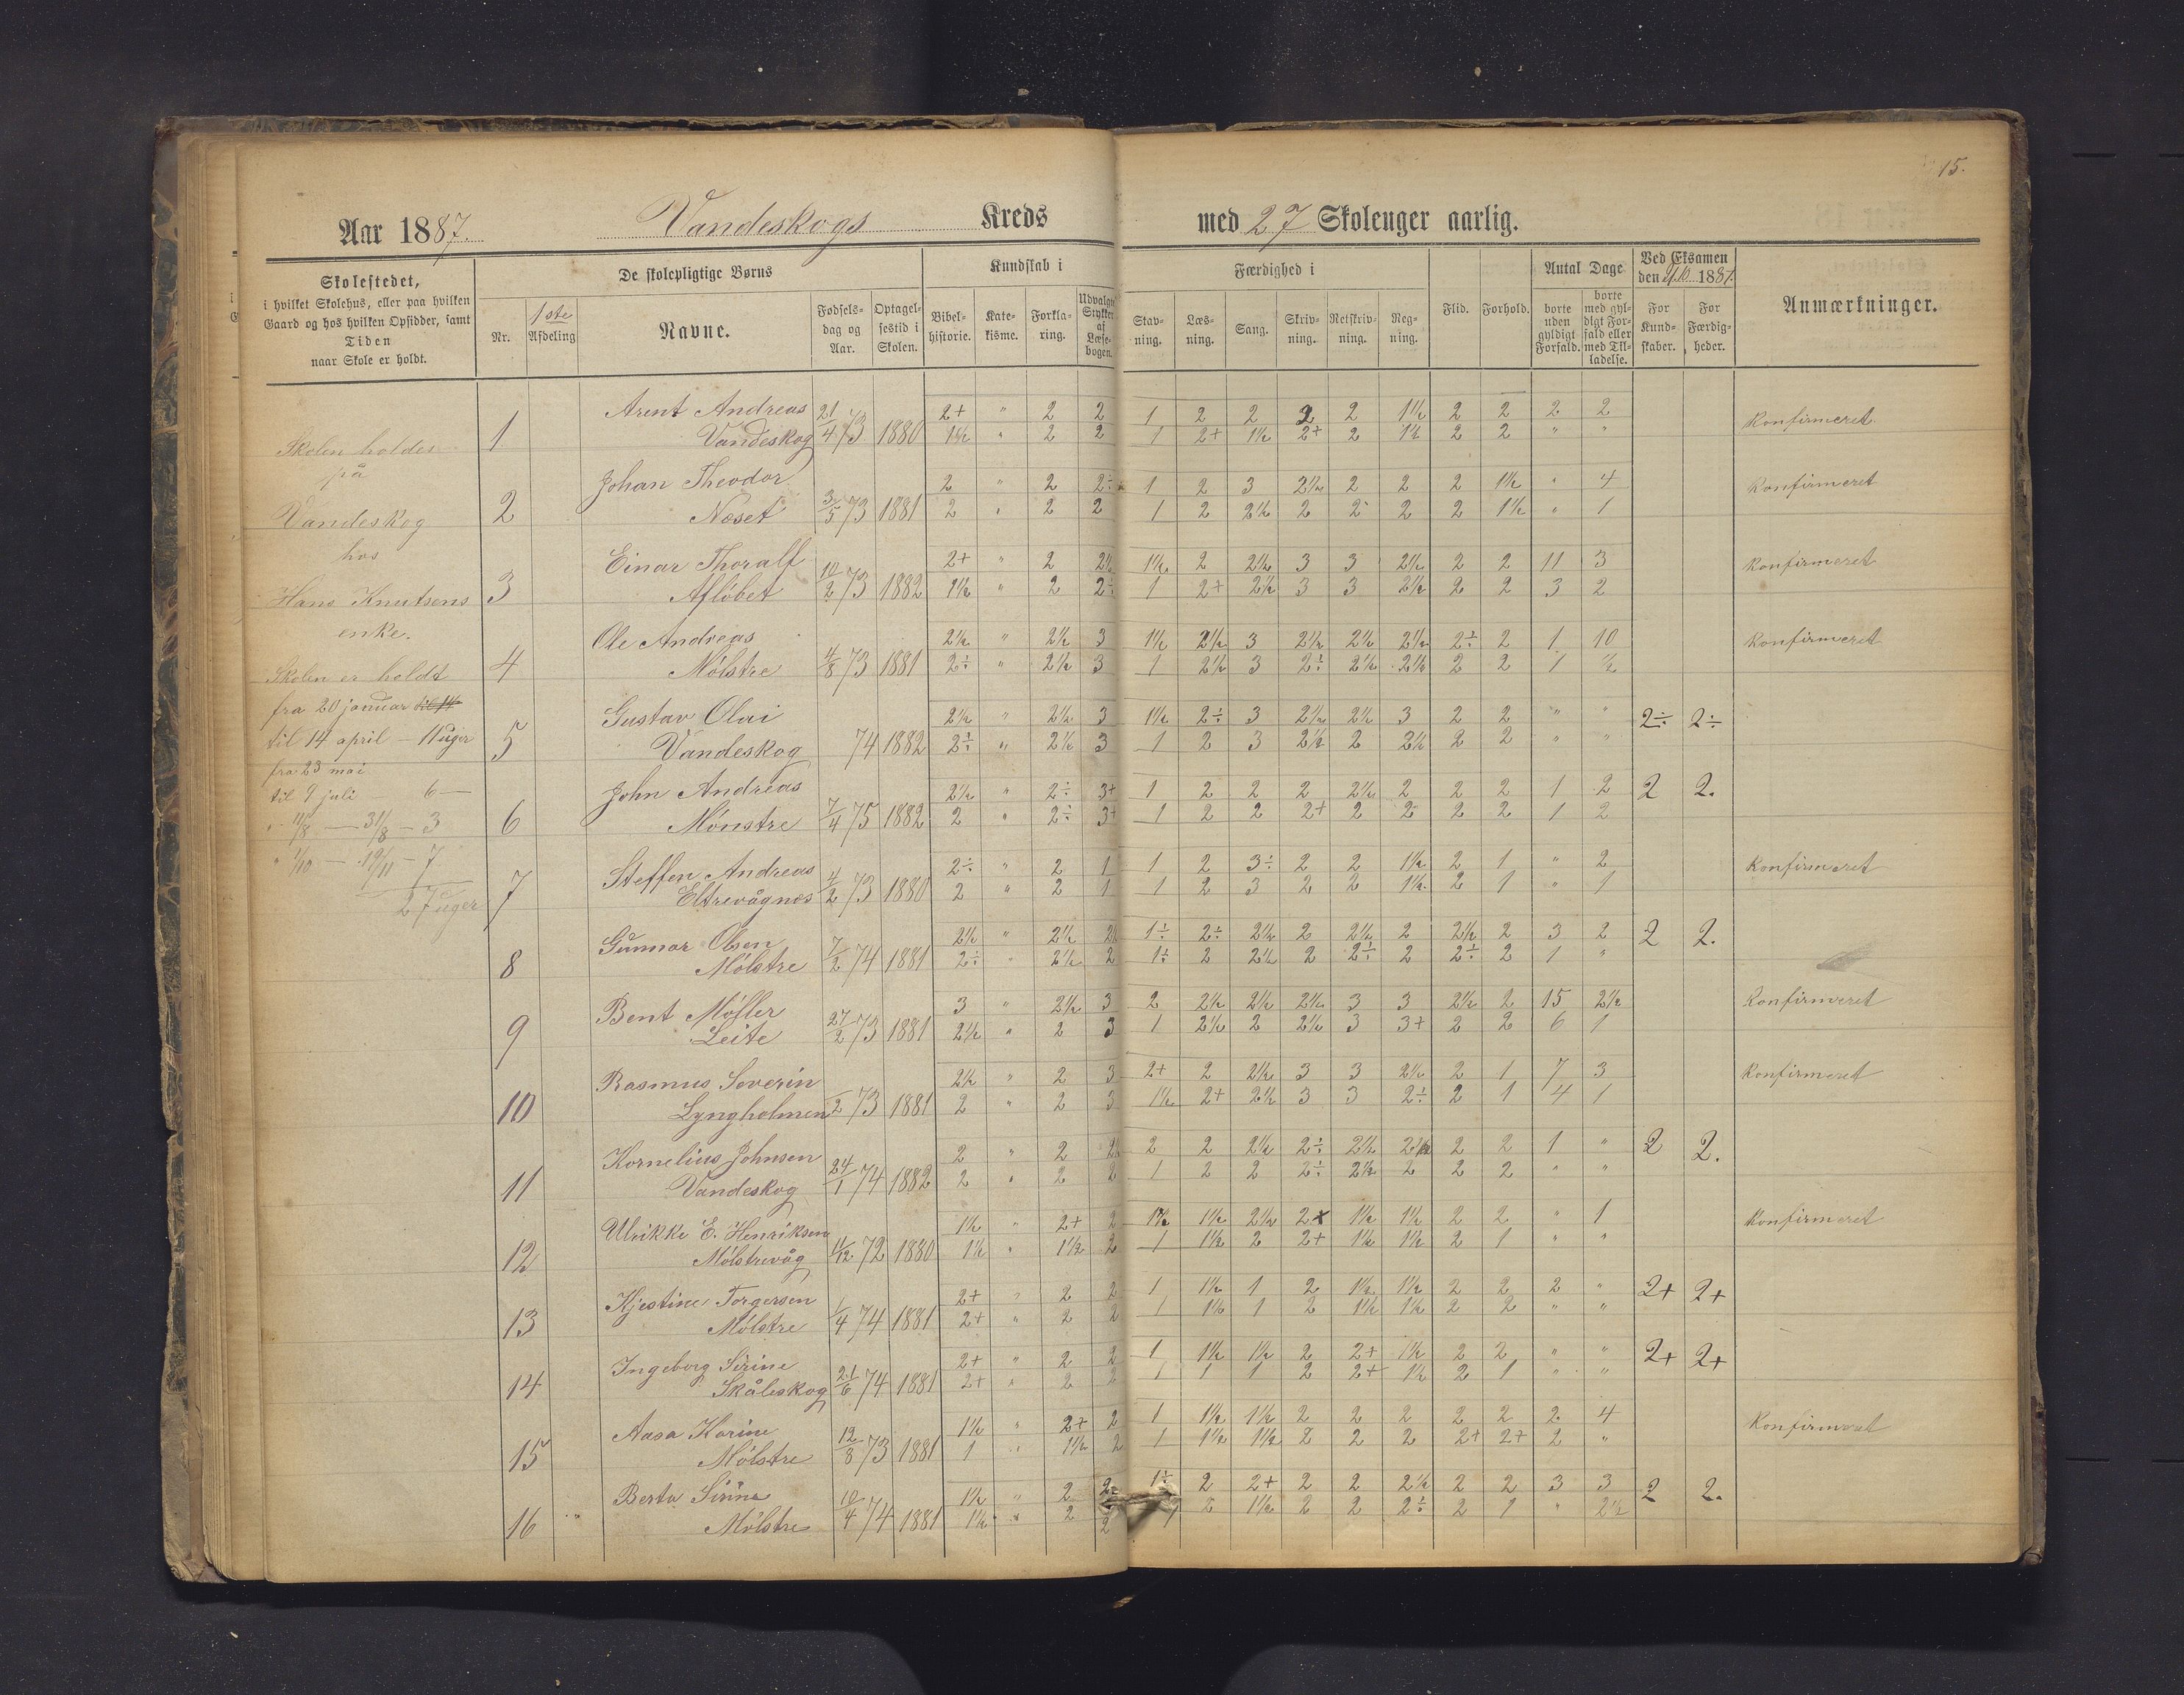 15.
Aar 1887. Vandeskogs Kreds med 27 Skoleuger aarlig.
Skolestedet,
i hvilket Skolehus, eller paa hvilken
Gaard og hos hvilken Opsidder, samt
Tiden
naar Skole er holdt.
De skolepligtige Børns
Nr.
1ste
Afdeling
Navne.
Fødsels-
dag og
Aar.
Optagel-
sestid i
Skolen.
Kundskab i
Bibel-
historie.
Kate-
kisme.
Forkla-
ring.
Udvalgte
Stykker
af
Læse-
bogen.
Færdighed i
Stav-
ning.
Læs-
ning.
Sang.
Skriv-
ning.
Retskriv-
ning.
Reg-
ning.
Flid.
Forhold.
Antal Dage
borte
uden
gyldigt
Forfald.
borte
med gyl-
digt For-
fald eller
med Til-
ladelse.
Ved Eksamen
den 1887.
For
Kund-
skaber.
For
Færdig-
heder.
Anmærkninger.
Skolen holdes
på
Vandeskog
hos
Hans Knutsens
enke.
Skolen er holdt
fra 20 januar
til 14 april – 11 uger
fra 23 mai
til 9 juli 6 —
" 11/8 — 31/8 – 3
" 1/10 — 19/11 – 7
27 uger
1 Arent Andreas 21/4 73 1880 2+ " 2 2 1 2 2 2 2 1½ 2 2 2 2 Konfirmeret
Vandeskog 1½ " 2 2 1 2+ 1½ 2+ 2 1½ 2 2 " "
2 Johan Theodor 3/5 73 1881 2 " 2 2÷ 1 2 3 2½ 2 2 2 1½ " 4 Konfirmeret
Næset 2 " 2 2 1 2 2½ 2 2 2 2 1½ " 1
3 Einar Thoralf 10/2 73 1882 2+ " 2 2½ 1½ 2 2½ 3 3 2½ 2 2 11 3 Konfirmeret
Afløbet 1½ " 2 2÷ 1 2+ 2½ 3 3 2½ 2 2 3 2
4 Ole Andreas 4/8 73 1881 2½ " 2½ 3 1½ 2½ 3 2½ 2½ 2½ 2÷ 2 1 10 Konfirmeret
Mølstre 2÷ " 2½ 3 1 2½ 3 2÷ 2½ 2½ 2 2 1 ½
5 Gustav Olai 74 1882 2½ " 2½ 3 1½ 2÷ 3 2½ 2½ 3 2 2 " " 2÷ 2÷
Vandeskog 2÷ " 2½ 3 1 2 3 2½ 2 2½ 2 2 " "
6 John Andreas 7/4 75 1882 2½ " 2÷ 3+ 1 2 2 2 2½ 2 2 2 1 2 2 2.
Mønstre 2 " 2÷ 3+ 1 2 2 2+ 2 2 2 2 1 2
7 Steffen Andreas 4/2 73 1880 2÷ " 2 1 1 2 3÷ 2 2 1½ 2 1 " 2 Konfirmeret
Eltrevågnæs 2 " 2 1 1 2 3 2 2 1½ 2 1 " 1
8 Gunnar Olsen 7/2 74 1881 2½ " 2½ 2½ 1÷ 2÷ 2½ 2 2½ 2 2½ 2 3 2 2 2.
Mølstre 2÷ " 2½ 2 1÷ 2 2½ 2 2÷ 2 2÷ 2 1 "
9 Bent Møller 27/2 73 1881 3 " 2½ 3 2 2½ 2½ 2½ 3 3 2½ 2 15 2½ Konfirmeret
Leite 2½ " 2 3 1 2½ 2 2½ 3 3+ 2 2 6 1
10 Rasmus Severin /2 73 1881 2½ " 2 3 2+ 2 2½ 3 3 2½ 2 1 7 3 Konfirmeret
Lyngholmen 2 " 2 3 1½ 2+ 2½ 3 3 2÷ 2 1 4 1
11 Kornelius Johnsen 24/1 74 1882 2 " 2 2½ 2 2 2½ 2÷ 2½ 2 2 2 1 " 2 2.
Vandeskog 2 " 2 2 1 2 2 2÷ 2½ 2 2 2 " "
12 Ulrikke E. Henriksen 11/12 72 1880 1½ " 2+ 2 1½ 1½ 2½ 2+ 1½ 1½ 2 2 " 1 Konfirmeret
Mølstrevåg 1½ " 1½ 2 1 1½ 2 2+ 1½ 1½ 2 1 " "
13 Kjestine Torgersen 1/4 74 1881 2+ " 2 2 1 1½ 1 2 1½ 1½ 2 2 2 " 2+ 2+
Mølstre 2+ " 2 2 1 1½ 1 2 1½ 1½ 2 2 " "
14 Ingeborg Sirine 21/6 74 1881 2+ " 2 2 1 1½ 1½ 2 2+ 1½ 2 2 " " 2+ 2+
Skåleskog 2+ " 2 2 1 1 1 2 2+ 1½ 2 1 " "
15 Aasa Karine 12/8 73 1881 1½ " 2+ 2 1 1½ 1½ 2 2 2 2 2 2 4 Konfirmeret
Mølstre 1 " 1½ 2 1 1½ 1½ 2 2 2 2+ 2+ 2 "
16 Berta Sirine 10/4 74 1881 1½ " 2 2 1÷ 2 2+ 2 2 2½ 2 2 3 3 2 2.
Mølstre 1½ " 2 2 1 2 1½ 2 2 2÷ 2 1 " 2½